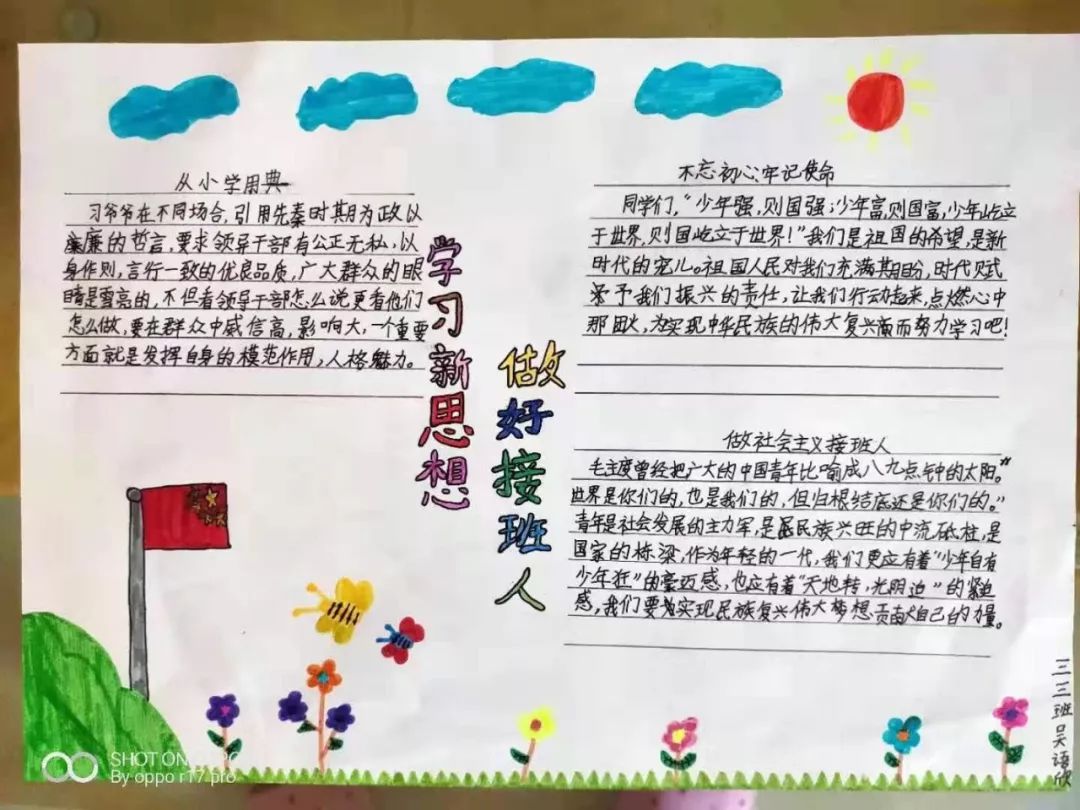 从小学用典
习爷爷在不同场合,引用先秦时期为政以
廉的哲言,要求领导干部有公正无私,以
身作则,言行一致的优良品质,广大群众的眼
睛是雪亮的,不但看领导干部怎么说更看他们
怎么做,要在群众中威信高,影响大,一个重要
方面就是发挥自身的模范作用,人格魅力。
学习新思想
做好接班人
不忘初心牢记使命
同学们,“少年强,则国强;少年富,则国富,少年屹立
于世界,则国屹立于世界!”我们是祖国的希望,是新
时代的宠儿。祖国人民对我们充满期盼,时代赋
予我们振兴的责任,让我们行动起来,点燃心中
那团火,为实现中华民族的伟大复兴而努力学习吧!
做社会主义接班人
毛主席曾经把广大的中国青年比喻成八九点钟的太阳。“
世界是你们的,也是我们的,但归根结底还是你们的。”
青年是社会发展的主力军,是民族兴旺的中流砥柱,是
国家的栋梁,作为年轻的一代,我们更应有着“少年自有
少年狂”的豪迈感,也应有着“天地转,光阴迫”的紧迫
感,我们要为实现民族复兴伟大梦想贡献自己的力量。
三三班吴语欣
SHOT ON OPPO
By oppo r17 pro